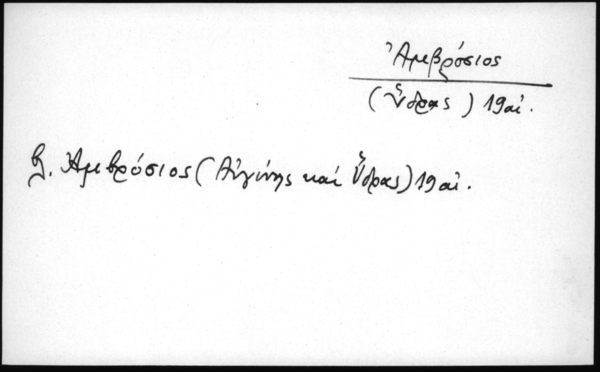 Ἀμβρόσιος
(Ὕδρας) 19 αἰ.
βλ. Ἀμβρόσιος (Αἰγίνης καί Ὕδρας) 19 αἰ.